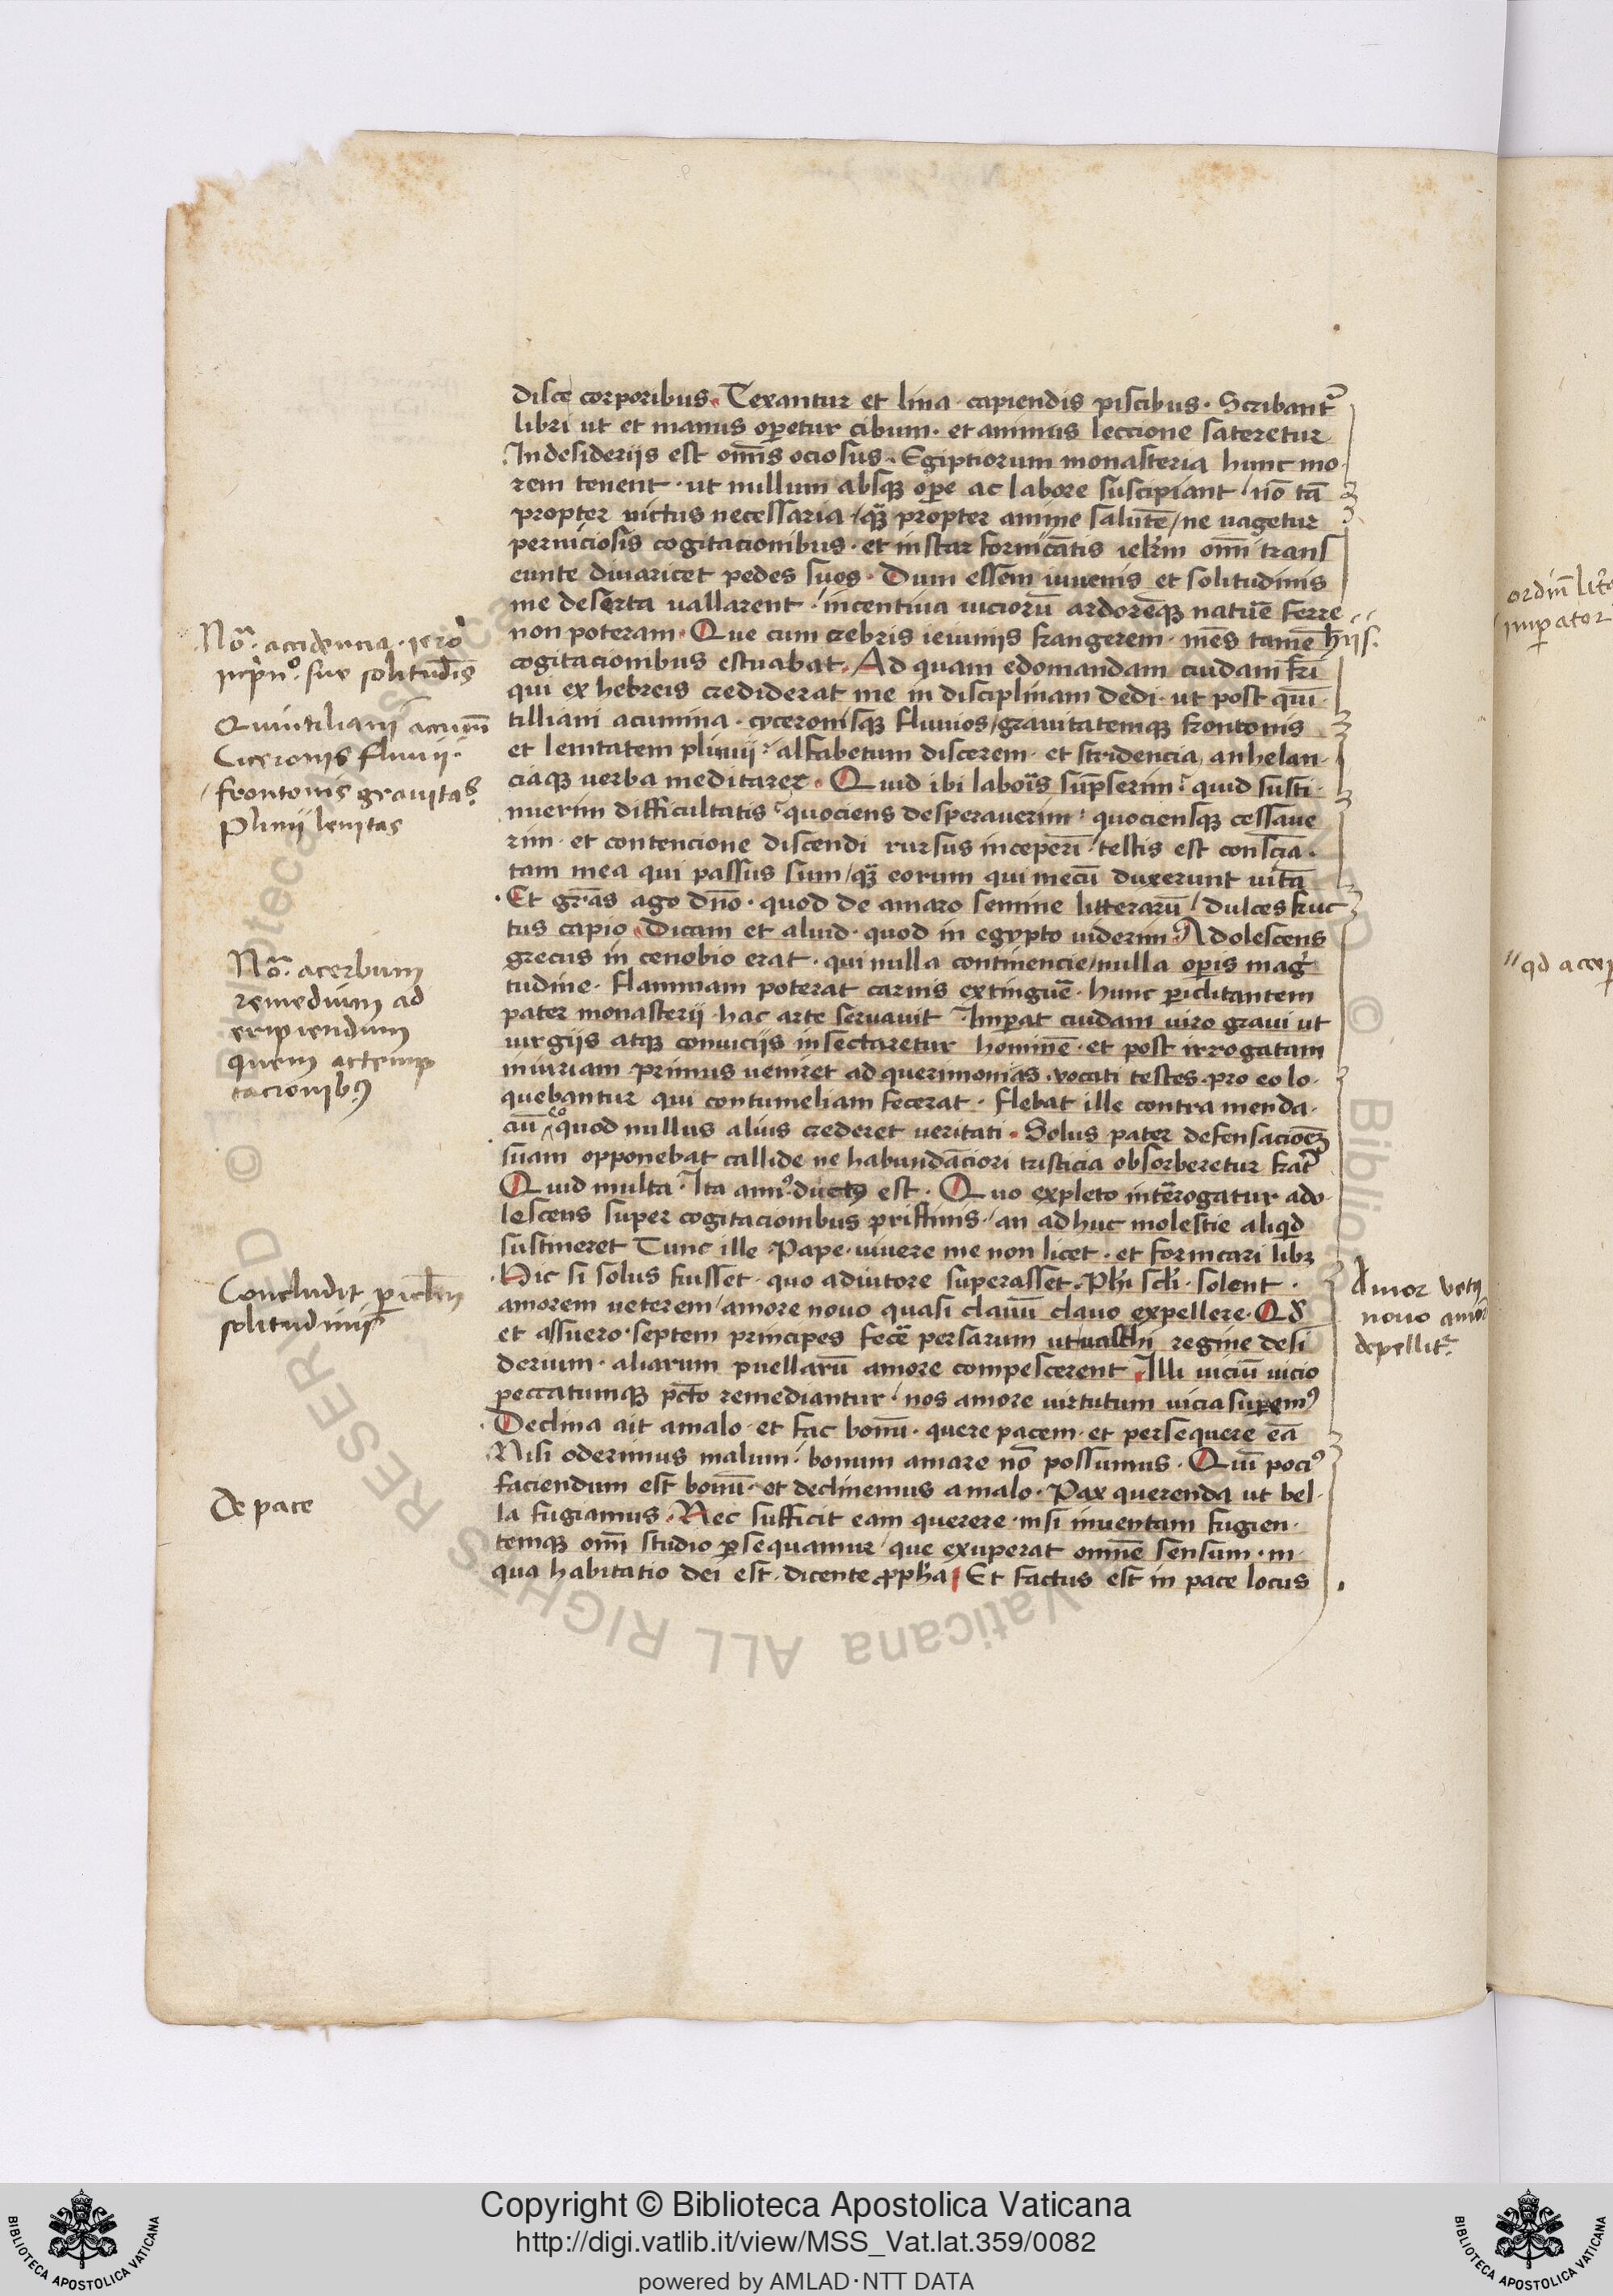 disce corporibus. Texantur et lina capiendis piscibus. Scribant᷑
libri ut et manus oꝑetur cibum. et animus leccione sateretur
In desiderijs est om̄is ociosus. Egiptiorum monasteria hunc mo
rem tenent. ut nullum absqꝫ oꝑe ac labore suscipiant / nō tā
propter victus necessaria / qꝫ propter anime salutē / ne uagetur
perniciosis cogitacionibus. et instar fornicātis ieꝉrm om̄i trans
eunte diuaricet pedes suos. Dum essem iuuenis et solitudinis
me deserta uallarent / incentiua uiciorū ardorēqꝫ natur̄e ferre
non poteram. Que cum crebris ieiunijs frangerem. mēs tamē hijs.
cogitacionibus estuabat. Ad quam edomandam cuidam fr̄i
qui ex hebreis crediderat me in disciplinam dedi. ut post qui
tilliani acumina. cyceronisqꝫ fluuios / grauitatemqꝫ frontonis
et lenitatem plinii / alfabetum discerem. et stridencia anhelan
ciaqꝫ uerba meditarer. Quid ibi labor̄is sūpserim. quid susti
nuerim difficultatis quociens desperauerim. quociensqꝫ cessaue
rim. et contencione discendi rursus inceperī / testis est consciā
tam mea qui passus sum / qꝫ eorum qui mecū duxerunt uitā
Et gr̄as ago dn̄o. quod de amaro semine litterarū / dulces fruc
tus capio. Dicam et aliud. quod in egypto uiderim. Adolescens
grecus in cenobio erat. qui nulla continencie / nulla oꝑis mag̾
tudine. flammam poterat carnis extinguē. hunc ꝑiclitantem
pater monasterij hac arte seruauit Imꝑat cuidam uiro graui ut
iurgijs atqꝫ conuicijs insectaretur hominē. et post irrogatam
iniuriam primus ueniret ad querimonias. vocati testes. pro eo lo
quebantur qui contumeliam fecerat. flebat ille contra menda
ciū eo quod nullus alius crederet ueritati. Solus pater defensacioēꝫ
suam opponebat callide ne habundāciori tristicia obsorberetur frat̾
Quid multa. Ita anꝰ ductꝰ est. Quo expleto int̄erogatur ado
lescens super cogitacionibus pristinis / an adhuc molestie aliqd
sustineret Tunc ille Pape. uiuere me non licet. et fornicari libꝫ
Hic si solus fuisset. quo adiutore superasset. Ph̄i scłi. solent.
amorem ueterem / amore nouo quasi clauū clauo expellere. Qd
et assuero. septem principes fecē persarum ut uasthi regine desi
derium. aliarum puellarū amore compescerent Illi uiciū uicio
peccatumqꝫ pctō remediantur / nos amore uirtutum uicia suꝑemꝰ
Declina ait amalo et fac bonū. quere pacem. et persequere eā
Nisi oderimus malum / bonum amare nō possumus. Quī pociꝰ
faciendum est bonū. et declinemus amalo. Pax querenda ut bel
la fugiamus. Nec sufficit eam querere nisi inuentam fugien
temqꝫ om̄i studio ꝑsequamur / que exuperat omnē sensum. in
qua habitatio dei est. dicente ꝓpha Et factus est in pace locus
Nōᵃ. accidencia. iero
inp̄nᵒ. sue solitud̄is
Quintiliani acumē
Ciceronis fluuii.
frontonis grauitas.
Plinij lenitas
Nōᵃ. acerbum
remedium ad
eripiendum
quem attemp
tacionibꝰ
Concludit ꝑicl̄m
solitudinis
De pace
Amor vetꝰ
nouo amōe
depellit᷑
ordīn lit̄e
imꝑator
qd accep
Copyright © Biblioteca Apostolica Vaticana
http://digi.vatlib.it/view/MSS_Vat.lat.359/0082
powered by AMLAD·NTT DATA
BIBLIOTECA APOSTOLICA VATICANA
BIBLIOTECA APOSTOLICA VATICANA